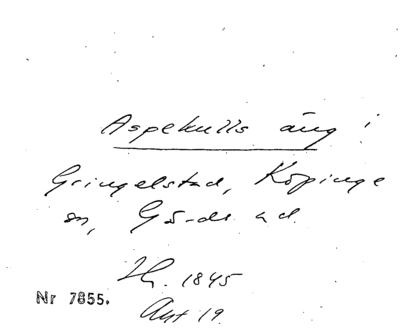 Aspekulls äng i
Gringelstad, Köpinge
sn, Gärds hd.
1845
Nr 7855.
Akt 19.